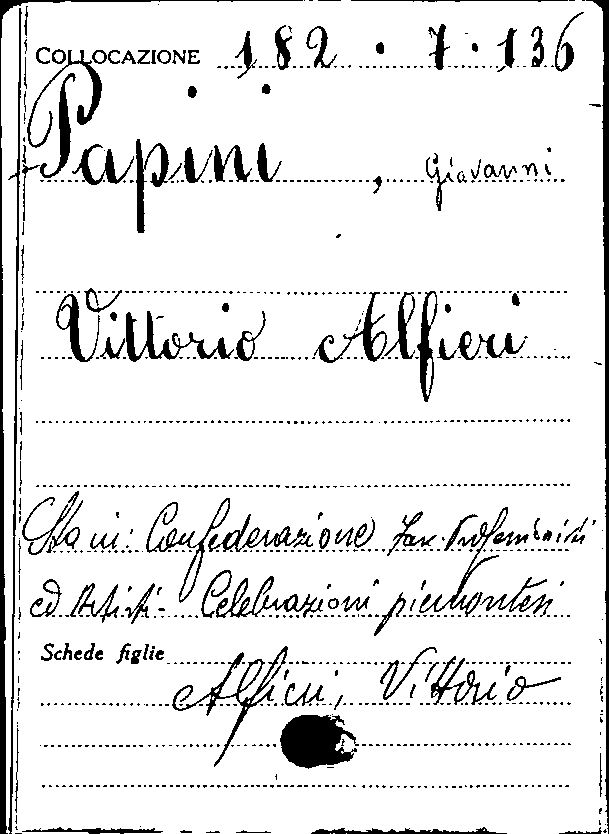 COLLOCAZIONE 182 . 7 . 136
Papini , Giovanni
Vittorio Alfieri
Sta in: Confederazione Fax. Professionisti
ed Artisti - Celebrazioni piemontesi
Schede figlie
Alfieri, Vittorio